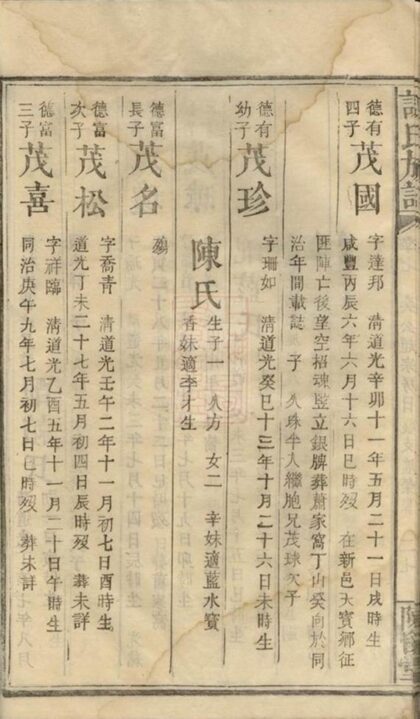 德有
四子
茂國
字達邦 清道光辛卯十一年五月二十一日戌時生
咸豐丙辰六年六月十六日巳時歿 在新邑天寶鄉征
匪陣亡後望空招魂豎立銀牌葬蕭家窩丁山癸向於同
治年間載誌 子 久珠半入繼胞兄茂球次子
德有
幼子
茂珍
字珊如 清道光癸巳十三年十月二十六日未時生
陳氏
生子一 久方 女二 辛妹適藍水寶
香妹適李才生
德富
長子
茂名
殤
德富
次子
茂松
字喬青 清道光壬午二年十一月初七日酉時生
道光丁未二十七年五月初四日辰時歿 葬未詳
德富
三子
茂喜
字祥臨 清道光乙酉五年十一月二十日午時生
同治庚午九年七月初七日巳時歿 葬未詳